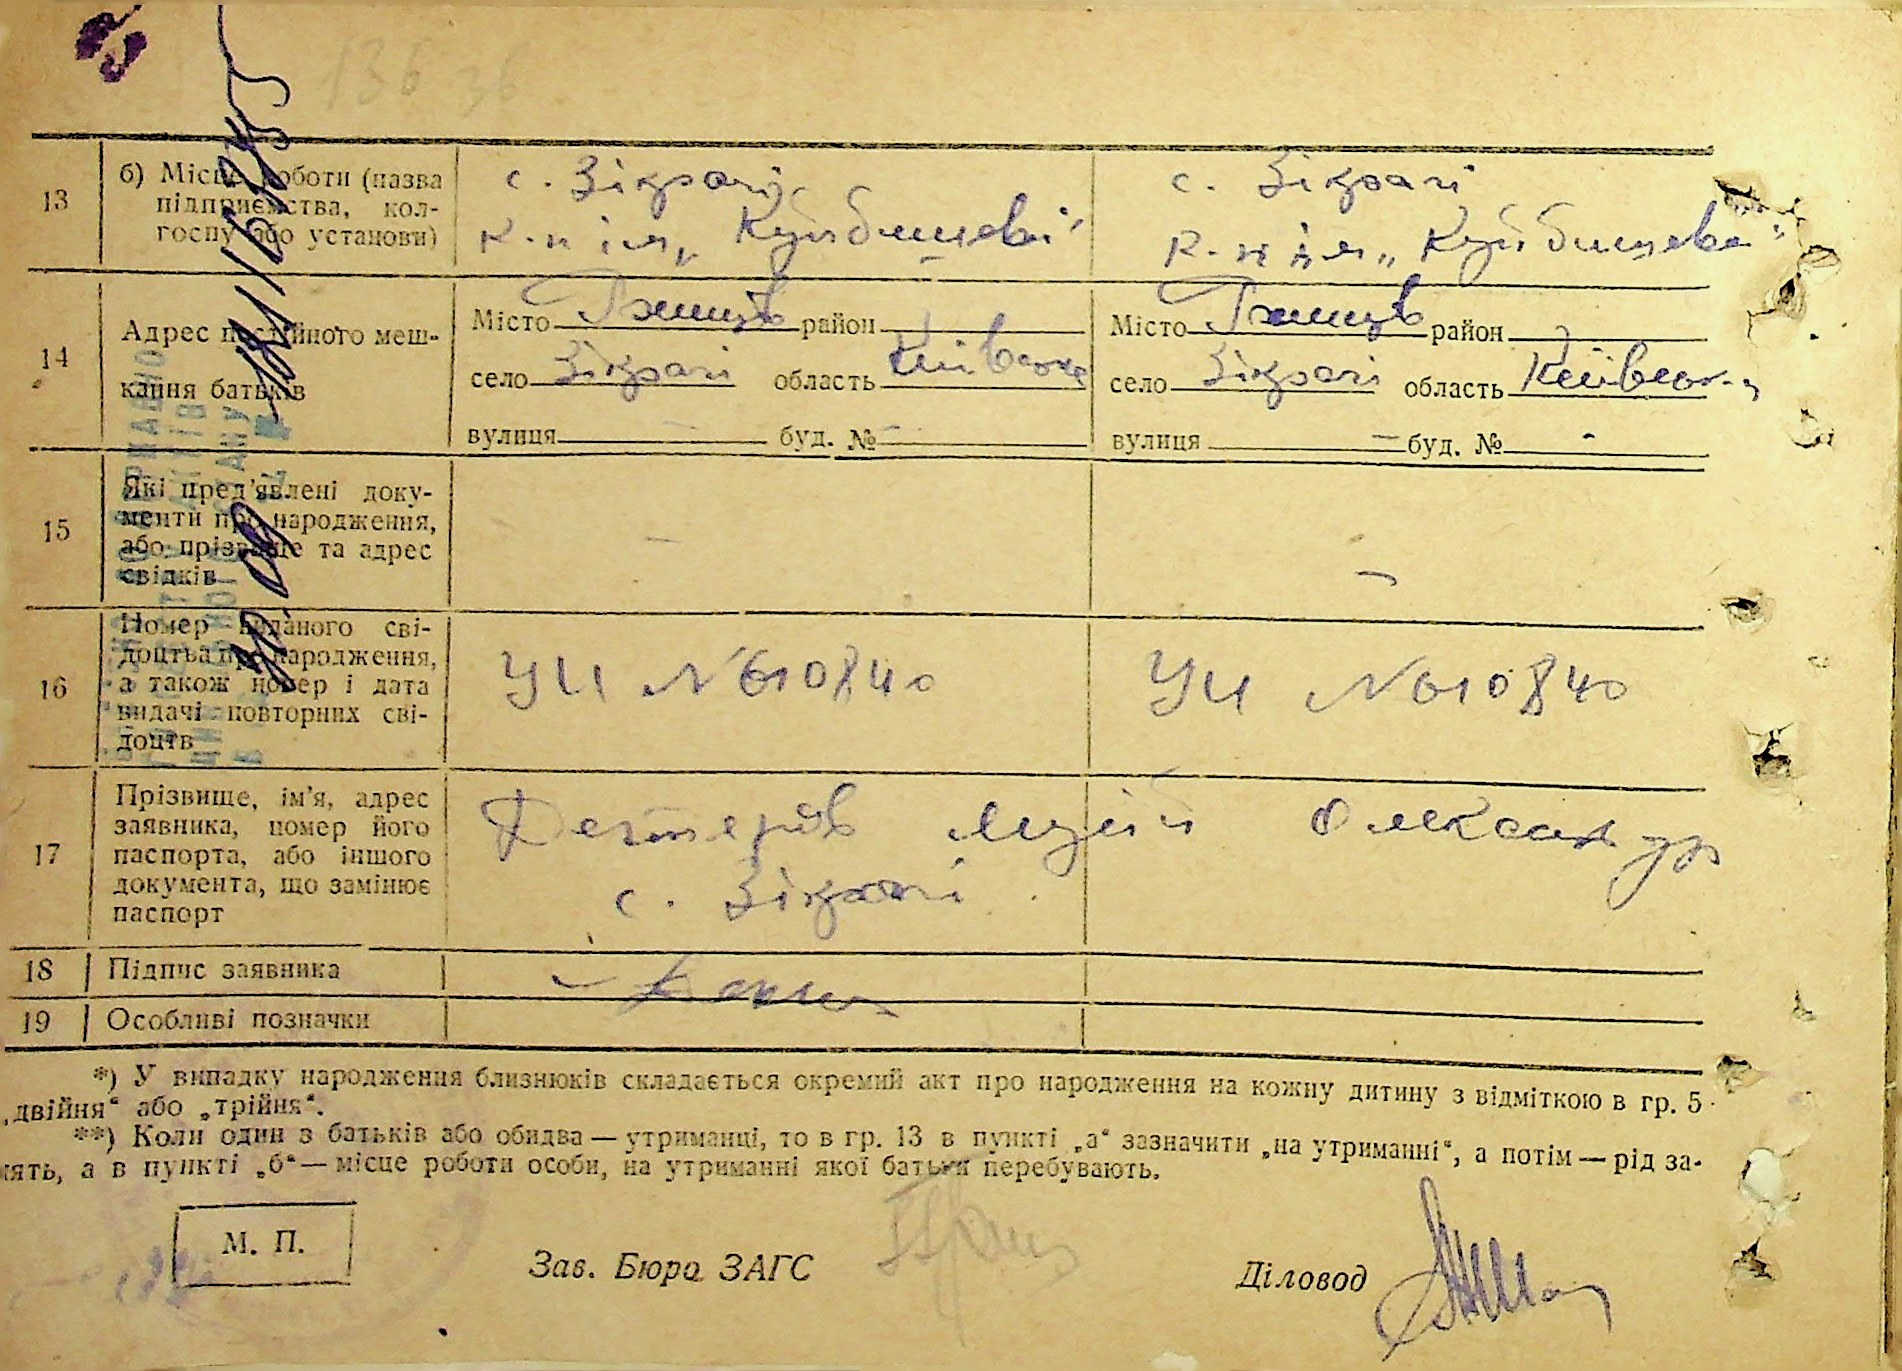 136 36
13
б) Місце роботи (назва підприємства, колгоспу або установи)
с. Зікрачі
к-п ім „Куйбишева"
с. Зікрачі
к-п ім „Куйбишева"
14
Адрес постійного мешкання батьків
Місто Ржищів район
село Зікрачі область Київська
вулиця — буд. № —
Місто Ржищів район
село Зікрачі область Київська
вулиця — буд. № -
15
Які пред'явлені документи про народження, або прізвище та адрес свідків
—
—
16
Номер виданого свідоцтва про народження, а також номер і дата видачі повторних свідоцтв
УИ № 610840
УИ № 610840
17
Прізвище, ім'я, адрес заявника, номер його паспорта, або іншого документа, що замінює паспорт
Олександр
с. Зікрачі
18
Підпис заявника
19
Особливі позначки
*) У випадку народження близнюків складається окремий акт про народження на кожну дитину з відміткою в гр. 5
„двійня" або „трійня".
**) Коли один з батьків або обидва — утриманці, то в гр. 13 в пункті „а" зазначити „на утриманні", а потім — рід за-
нять, а в пункті „б" — місце роботи особи, на утриманні якої батьки перебувають.
М. П.
Зав. Бюро ЗАГС
Діловод